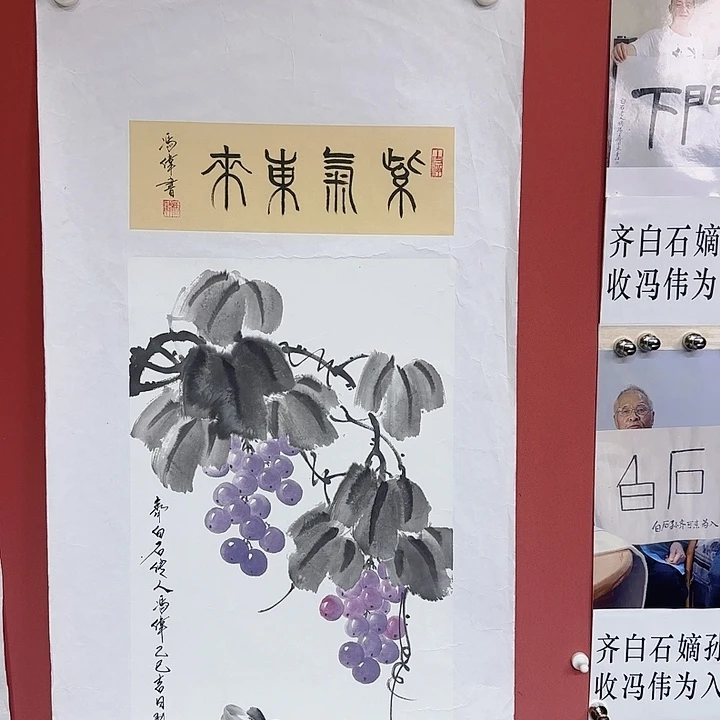 紫氣東來
馮偉書
齊白石傳人馮偉乙巳吉日
門下
齐白石嫡
收冯伟为
白石
齐白石嫡孙
收冯伟为入